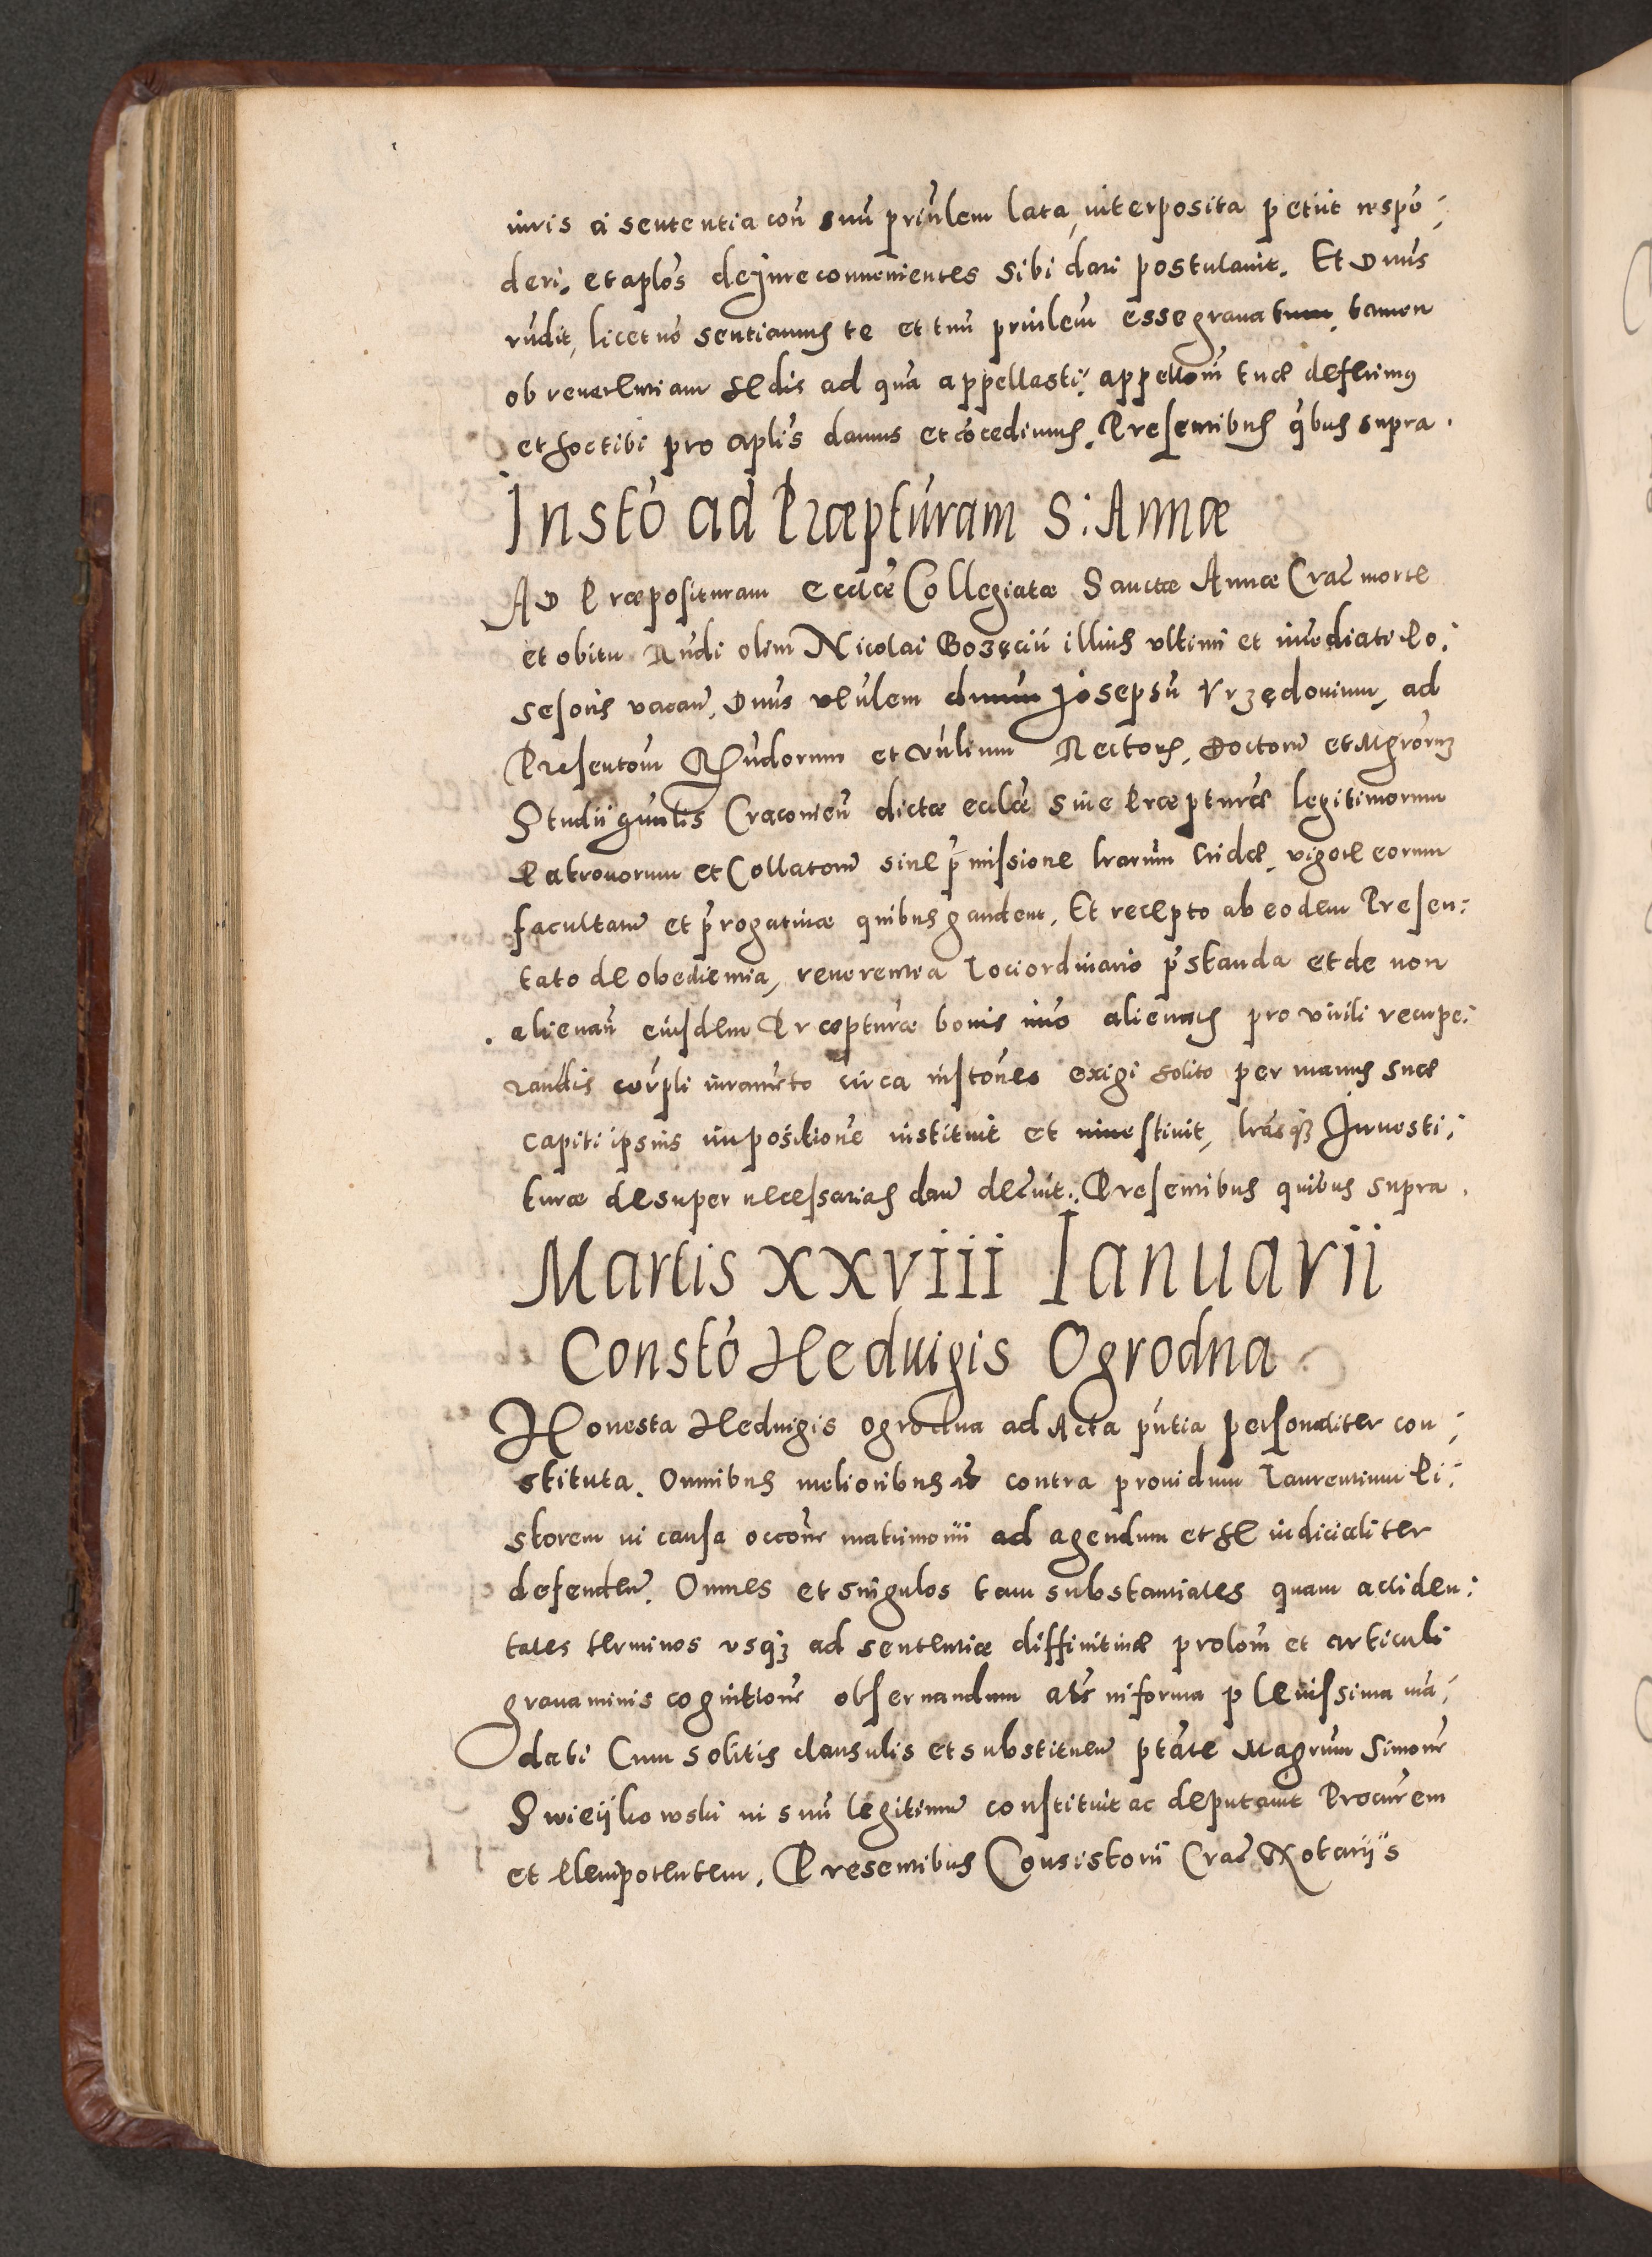 iuris a sententia con̄ suū prin̄lem lata, interposita petiit respō:
deri. et aplōs de jure convenientes sibi dari postulavit. Et Dn̄us
rn̄dit, licet nō sentiamus te et tuū prin̄lem esse gravatum, tamen
ob reverentiam sedis ad quā appellasti, appellōni tuæ deferimus
et hoc tibi pro aplīs damus et cōcedimus. Presentibus qūbus supra.
Instō ad Præptúram S: Annæ
AD Præposituram ecclæ Collegiatæ Sanctæ Annæ Crac̄ morte
et obitu Rn̄di olim Nicolai Bozęcin̄ illius ultimi et immediati Po:
sesoris vacan̄. Dn̄us vēn̄lem dn̄um Josepsū Vrzędovium, ad
Presentōnem Rn̄dorum et vn̄lium Rectoris, Doctorū et Mgrōrūz
Studii gn̄alis Cracovien̄ dictæ ecclæ sive Præpturæ legitimorum
Patronorum et Collatorū sine p̄missione lrarūm cridæ, vigore eorum
facultatū et p̄rogativæ quibus gaudent. Et recepto ab eodem Presen:
tato de obedientia, reverentia loci ordinario p̄standa et de non
alienan̄ eiusdem Præpturæ bonis imo alienatis pro virili recupe:
randis corp̄li iuramēto circa instōnes exigi solito per manus suæ
capiti ipsius impositionē instituit et investivit, lrāsq̄z Investi:
turæ desuper necessarias dan̄ decrēvit. Presentibus quibus supra.
Martis xxviii Ianuarii
Constō Hedvigis Ogrodna
Honesta Hedvigis Ogrodna ad Acta pn̄tia personaliter con:
stituta. Omnibus melioribus contra providum Laurentium Pi:
storem in causa occōne matrimonii ad agendum et se iudicialiter
defenden̄. Omnes et singulos tam substantiales quam acciden:
tales terminos usq̄z ad sententiæ diffinitivæ prolōnem et articuli
gravaminis cognitionē observandum in forma plenissima mā:
dati Cum solitis clausulis et substituen̄ ptāte Magrūm Simonē
Swieijkowski in suū legitimū constituit ac deputavit Procur̄em
et plenipotentem. Presentibus Consistorii Crac̄ Notariis